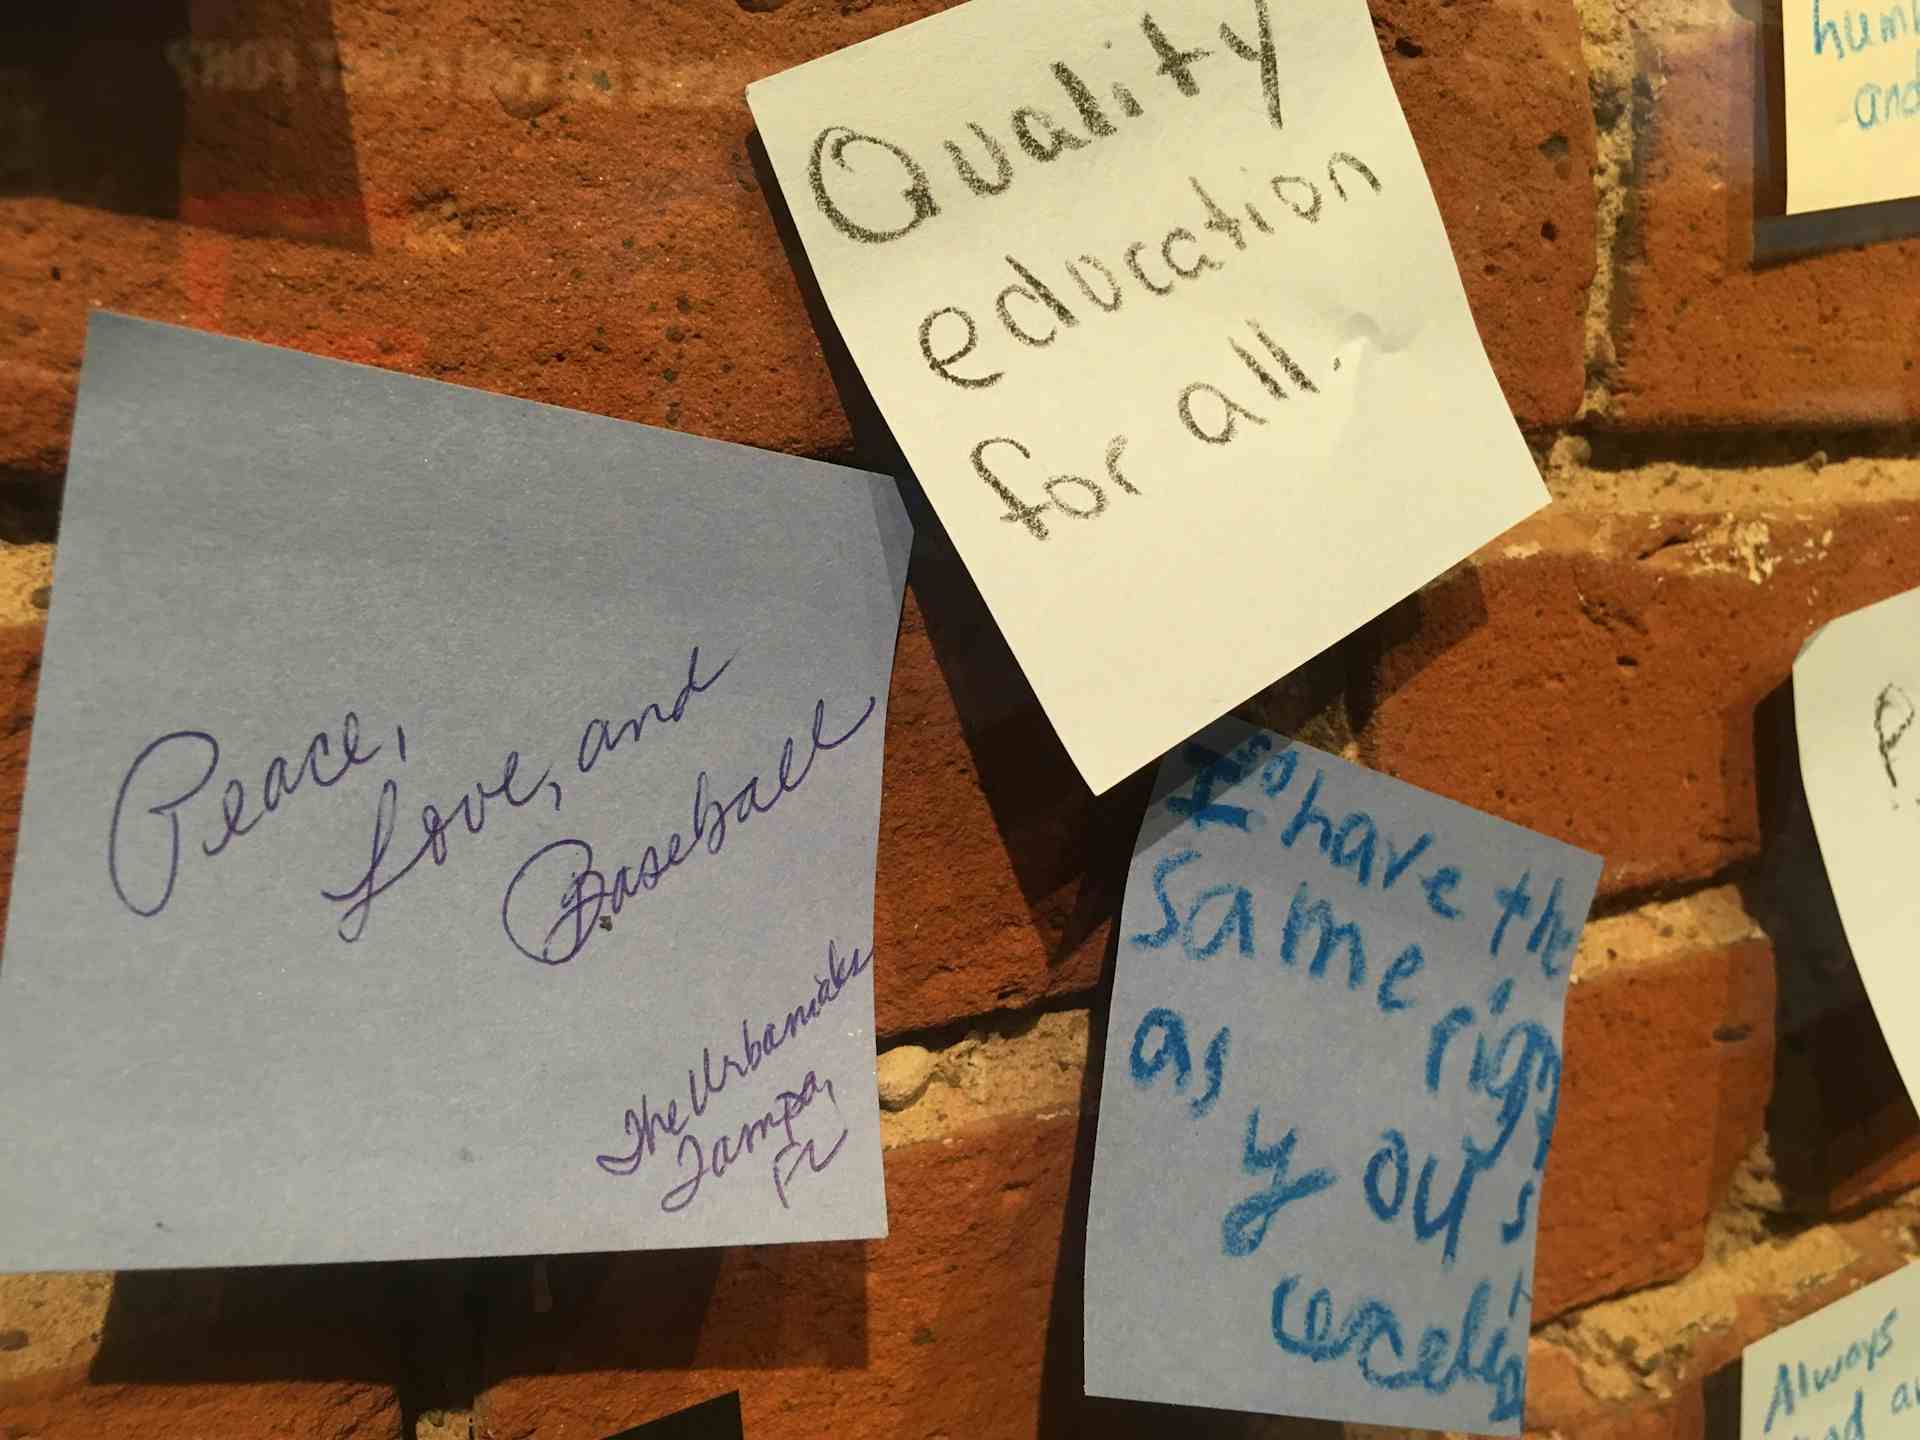 Quality
education
for all.
Peace,
Love, and
Baseball
The Urbaniaks
Tampa,
FL
I have the
same righ
as you
and
Always